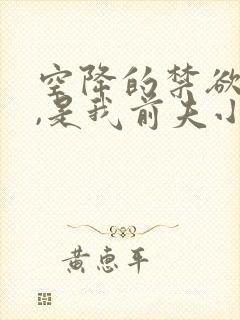 空降的禁欲
,是我前夫小
黄惠平